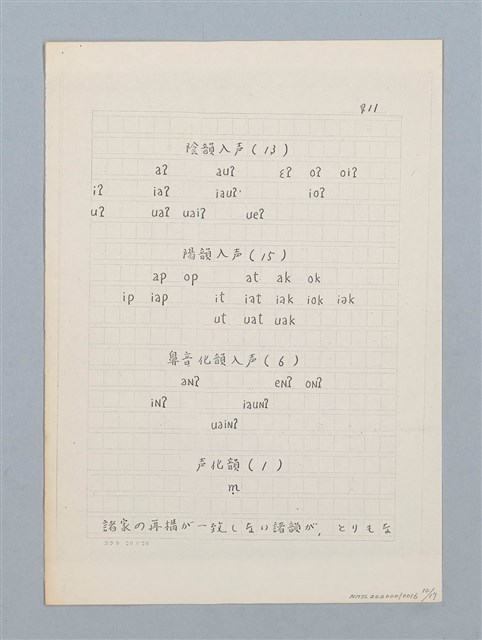 P11
陰韻入声(13)
aʔ auʔ ɛʔ oʔ oiʔ
iʔ iaʔ iauʔ ioʔ
uʔ uaʔ uaiʔ ueʔ
陽韻入声(15)
ap op at ak ok
ip iap it iat iak iok iək
ut uat uak
鼻音化韻入声(6)
aɴʔ eɴʔ oɴʔ
iɴʔ iauɴʔ
uaiɴʔ
声化韻(1)
m̩
諸家の再構が一致しない諸韻が,とりもな
コクヨ 20×20
NMTL202000/0016 10/17